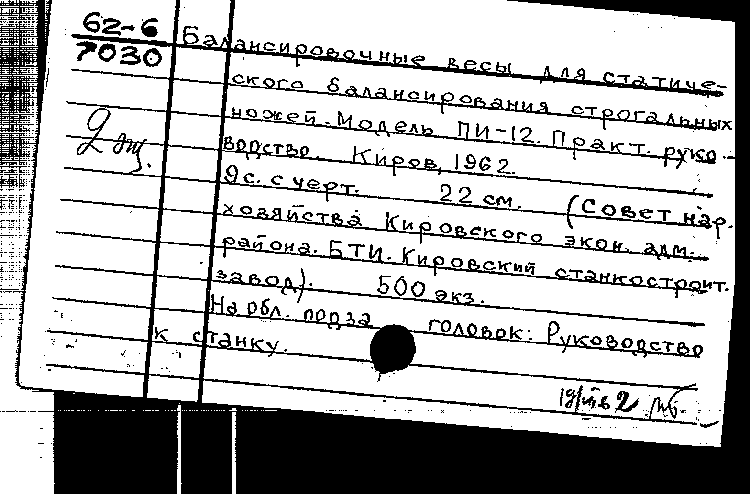 62-6
7030
Балансировочные весы для статиче-
ского балансирования строгальных
ножей. Модель ПИ-12. Практ. руко-
водство. Киров, 1962.
2 экз.
9с. с черт. 22 см. (Совет нар.
хозяйства Кировского экон. адм.
района. БТИ. Кировский станкостроит.
завод). 500 экз.
На обл. подзаголовок: Руководство
к станку.